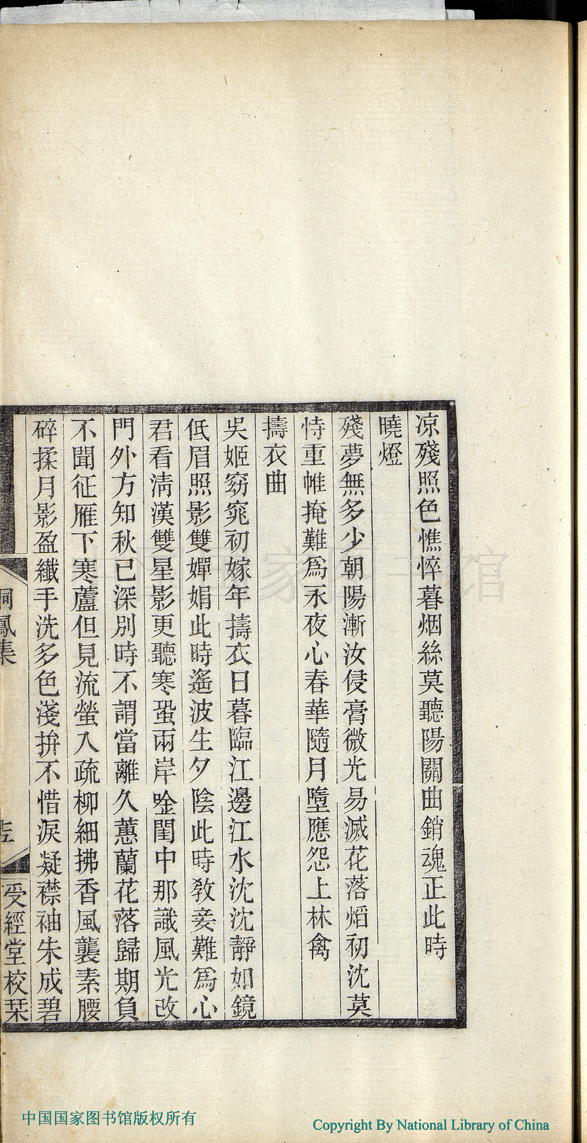 涼殘照色憔悴暮烟絲莫聽陽關曲銷魂正此時
曉燈
殘夢無多少朝陽漸汝侵膏微光易滅花落熖初沈莫
恃重帷掩難爲永夜心春華隨月墮應怨上林禽
擣衣曲
吳姬窈窕初嫁年擣衣日暮臨江邊江水沈沈靜如鏡
低眉照影雙嬋娟此時遙波生夕陰此時敎妾難爲心
君看淸漢雙星影更聽寒蛩兩岸唫閨中那識風光改
門外方知秋已深別時不謂當離久蕙蘭花落歸期負
不聞征雁下寒蘆但見流螢入疏柳細拂香風襲素腰
碎揉月影盈纖手洗多色淺拚不惜淚凝襟袖朱成碧
桐鳳集
受經堂校栞
中国国家图书馆版权所有
Copyright By National Library of China